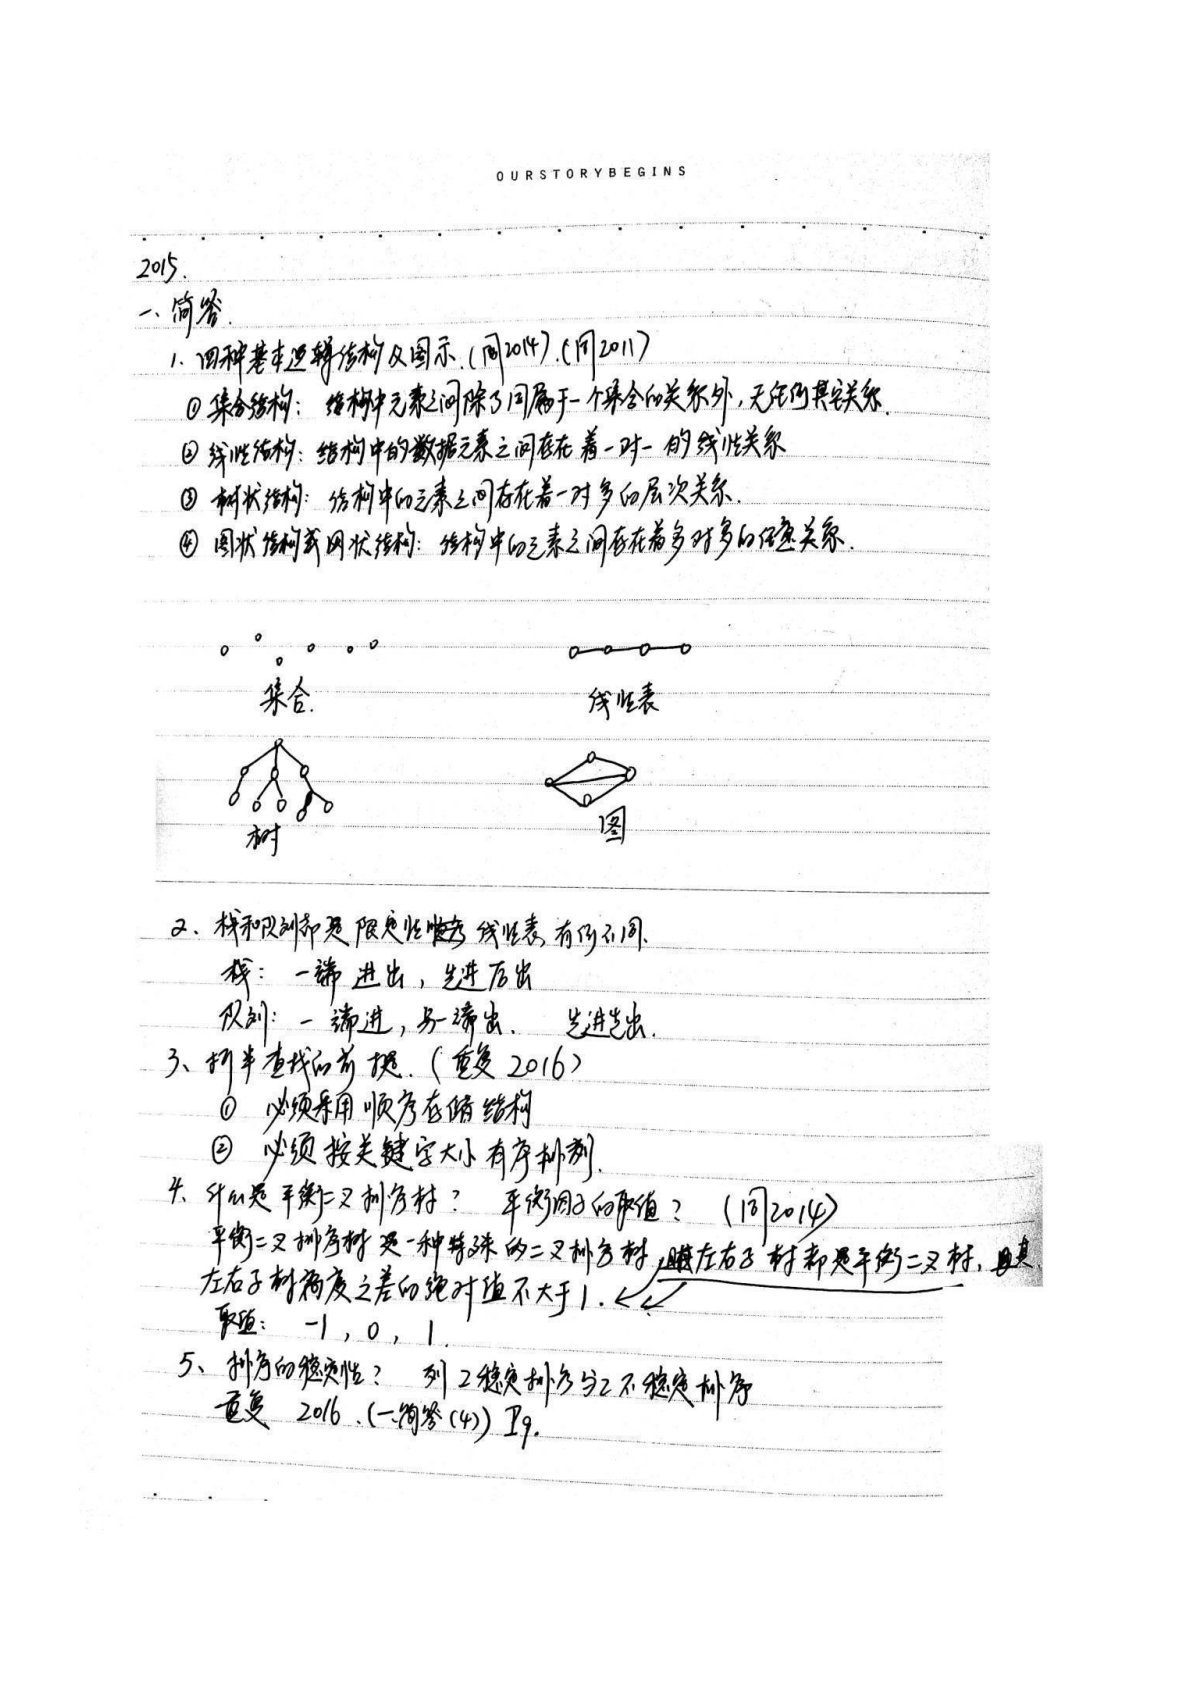 OURSTORYBEGINS
2015.
一、简答.
1. 四种基本逻辑结构及图示.(同2014).(同2011)
① 集合结构: 结构中元素之间除了同属于一个集合的关系外,无任何其它关系.
② 线性结构: 结构中的数据元素之间存在着一对一的线性关系
③ 树状结构: 结构中的元素之间存在着一对多的层次关系.
④ 图状结构或网状结构: 结构中的元素之间存在着多对多的任意关系.
集合. 线性表
树 图
2、栈和队列都是限定性线性表,有何不同.
栈: 一端进出,先进后出
队列: 一端进,另一端出. 先进先出.
3、折半查找的前提.(重复2016)
① 必须采用顺序存储结构
② 必须按关键字大小有序排列.
4、什么是平衡二叉排序树? 平衡因子的取值? (同2014)
平衡二叉排序树是一种特殊的二叉排序树,左右子树都是平衡二叉树,且其
左右子树高度之差的绝对值不大于1.
取值: -1, 0, 1.
5、排序的稳定性? 列2稳定排序与2不稳定排序
重复 2016.(一.简答(4)) P9.